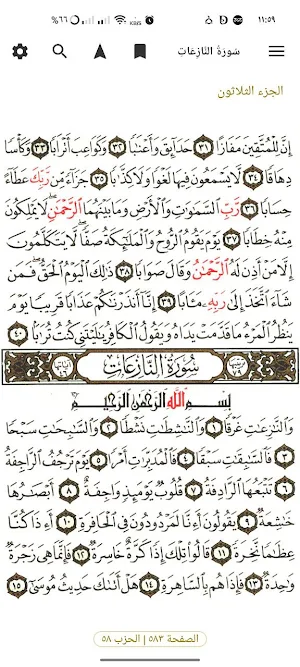 ١١:٥٩
٪٦٦
KB/S
سُورَةُ النَّازِعَاتِ
الجزء الثلاثون
إِنَّ لِلْمُتَّقِينَ مَفَازًا ٣١ حَدَآئِقَ وَأَعْنَٰبًا ٣٢ وَكَوَاعِبَ أَتْرَابًا ٣٣ وَكَأْسًا
دِهَاقًا ٣٤ لَّا يَسْمَعُونَ فِيهَا لَغْوًا وَلَا كِذَّٰبًا ٣٥ جَزَآءً مِّن رَّبِّكَ عَطَآءً
حِسَابًا ٣٦ رَّبِّ السَّمَٰوَٰتِ وَالْأَرْضِ وَمَا بَيْنَهُمَا الرَّحْمَٰنِ لَا يَمْلِكُونَ
مِنْهُ خِطَابًا ٣٧ يَوْمَ يَقُومُ الرُّوحُ وَالْمَلَٰٓئِكَةُ صَفًّا لَّا يَتَكَلَّمُونَ
إِلَّا مَنْ أَذِنَ لَهُ الرَّحْمَٰنُ وَقَالَ صَوَابًا ٣٨ ذَٰلِكَ الْيَوْمُ الْحَقُّ فَمَن
شَآءَ اتَّخَذَ إِلَىٰ رَبِّهِ مَـَٔابًا ٣٩ إِنَّآ أَنذَرْنَٰكُمْ عَذَابًا قَرِيبًا يَوْمَ
يَنظُرُ الْمَرْءُ مَا قَدَّمَتْ يَدَاهُ وَيَقُولُ الْكَافِرُ يَٰلَيْتَنِي كُنتُ تُرَٰبًا ٤٠
سُورَةُ النَّازِعَاتِ
بِسْمِ اللَّهِ الرَّحْمَٰنِ الرَّحِيمِ
وَالنَّٰزِعَٰتِ غَرْقًا ١ وَالنَّٰشِطَٰتِ نَشْطًا ٢ وَالسَّٰبِحَٰتِ سَبْحًا
٣ فَالسَّٰبِقَٰتِ سَبْقًا ٤ فَالْمُدَبِّرَٰتِ أَمْرًا ٥ يَوْمَ تَرْجُفُ الرَّاجِفَةُ
٦ تَتْبَعُهَا الرَّادِفَةُ ٧ قُلُوبٌ يَوْمَئِذٍ وَاجِفَةٌ ٨ أَبْصَٰرُهَا
خَٰشِعَةٌ ٩ يَقُولُونَ أَءِنَّا لَمَرْدُودُونَ فِي الْحَافِرَةِ ١٠ أَءِذَا كُنَّا
عِظَٰمًا نَّخِرَةً ١١ قَالُوا تِلْكَ إِذًا كَرَّةٌ خَاسِرَةٌ ١٢ فَإِنَّمَا هِيَ زَجْرَةٌ
وَٰحِدَةٌ ١٣ فَإِذَا هُم بِالسَّاهِرَةِ ١٤ هَلْ أَتَىٰكَ حَدِيثُ مُوسَىٰٓ ١٥
الصفحة ٥٨٣ | الحزب ٥٨